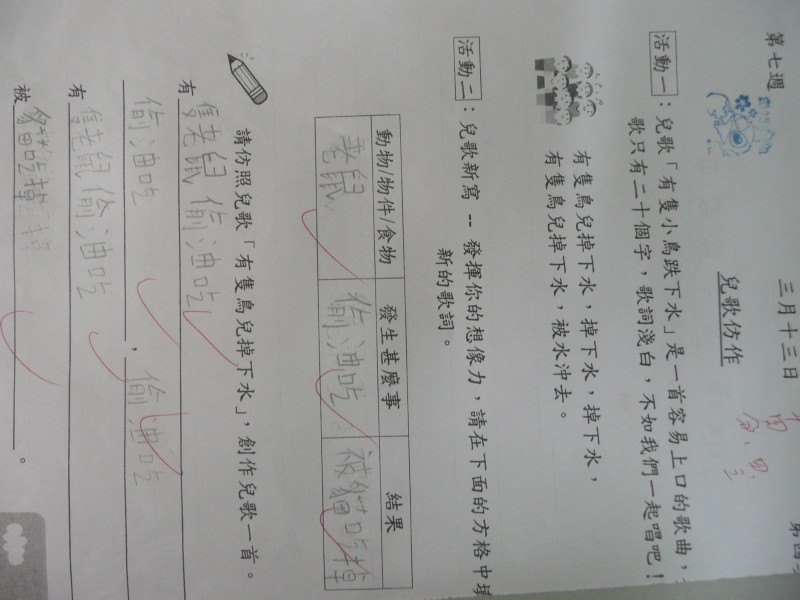 第七週
三月十三日
兒歌仿作
活動一：兒歌「有隻小鳥跌下水」是一首容易上口的歌曲，
歌只有二十個字，歌詞淺白，不如我們一起唱吧！
有隻鳥兒掉下水，掉下水，掉下水，
有隻鳥兒掉下水，被水沖去。
活動二：兒歌新寫 -- 發揮你的想像力，請在下面的方格中填
新的歌詞。
動物/物件/食物 發生甚麼事 結果
老鼠 偷油吃 被貓吃掉
請仿照兒歌「有隻鳥兒掉下水」，創作兒歌一首。
有隻老鼠偷油吃
偷油吃，偷油吃
有隻老鼠偷油吃
被貓吃掉。